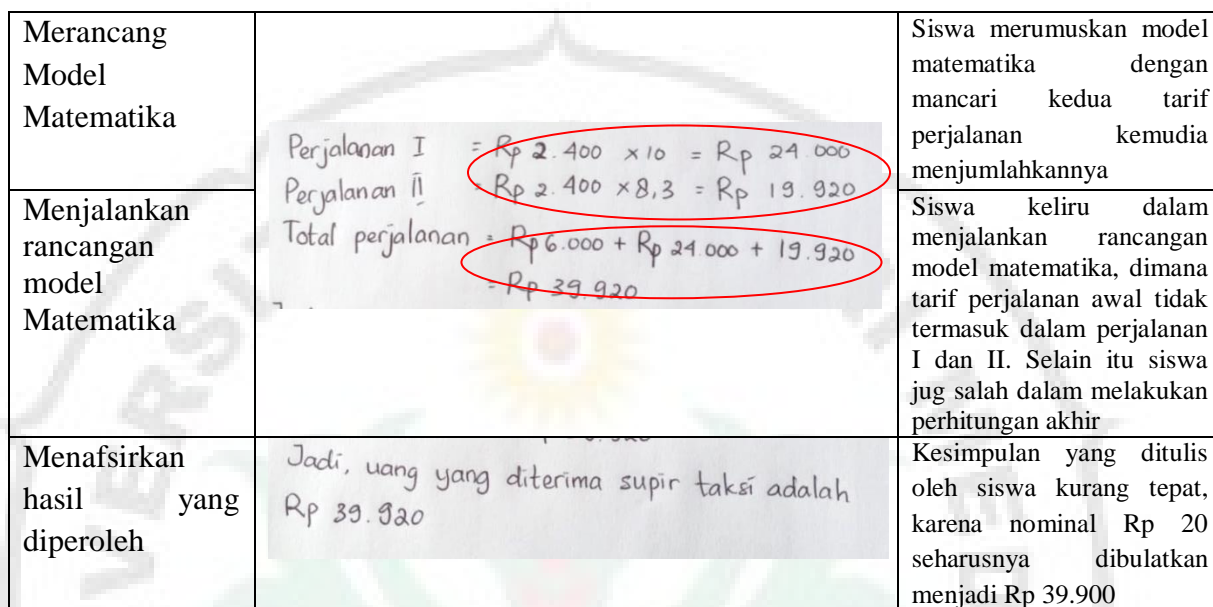 Merancang
Model
Matematika
Perjalanan I = Rp 2.400 × 10 = Rp 24.000
Perjalanan II = Rp 2.400 × 8,3 = Rp 19.920
Total perjalanan = Rp 6.000 + Rp 24.000 + 19.920
= Rp 39.920
Siswa merumuskan model
matematika dengan
mancari kedua tarif
perjalanan kemudia
menjumlahkannya
Menjalankan
rancangan
model
Matematika
Siswa keliru dalam
menjalankan rancangan
model matematika, dimana
tarif perjalanan awal tidak
termasuk dalam perjalanan
I dan II. Selain itu siswa
jug salah dalam melakukan
perhitungan akhir
Menafsirkan
hasil yang
diperoleh
Jadi, uang yang diterima supir taksi adalah
Rp 39.920
Kesimpulan yang ditulis
oleh siswa kurang tepat,
karena nominal Rp 20
seharusnya dibulatkan
menjadi Rp 39.900